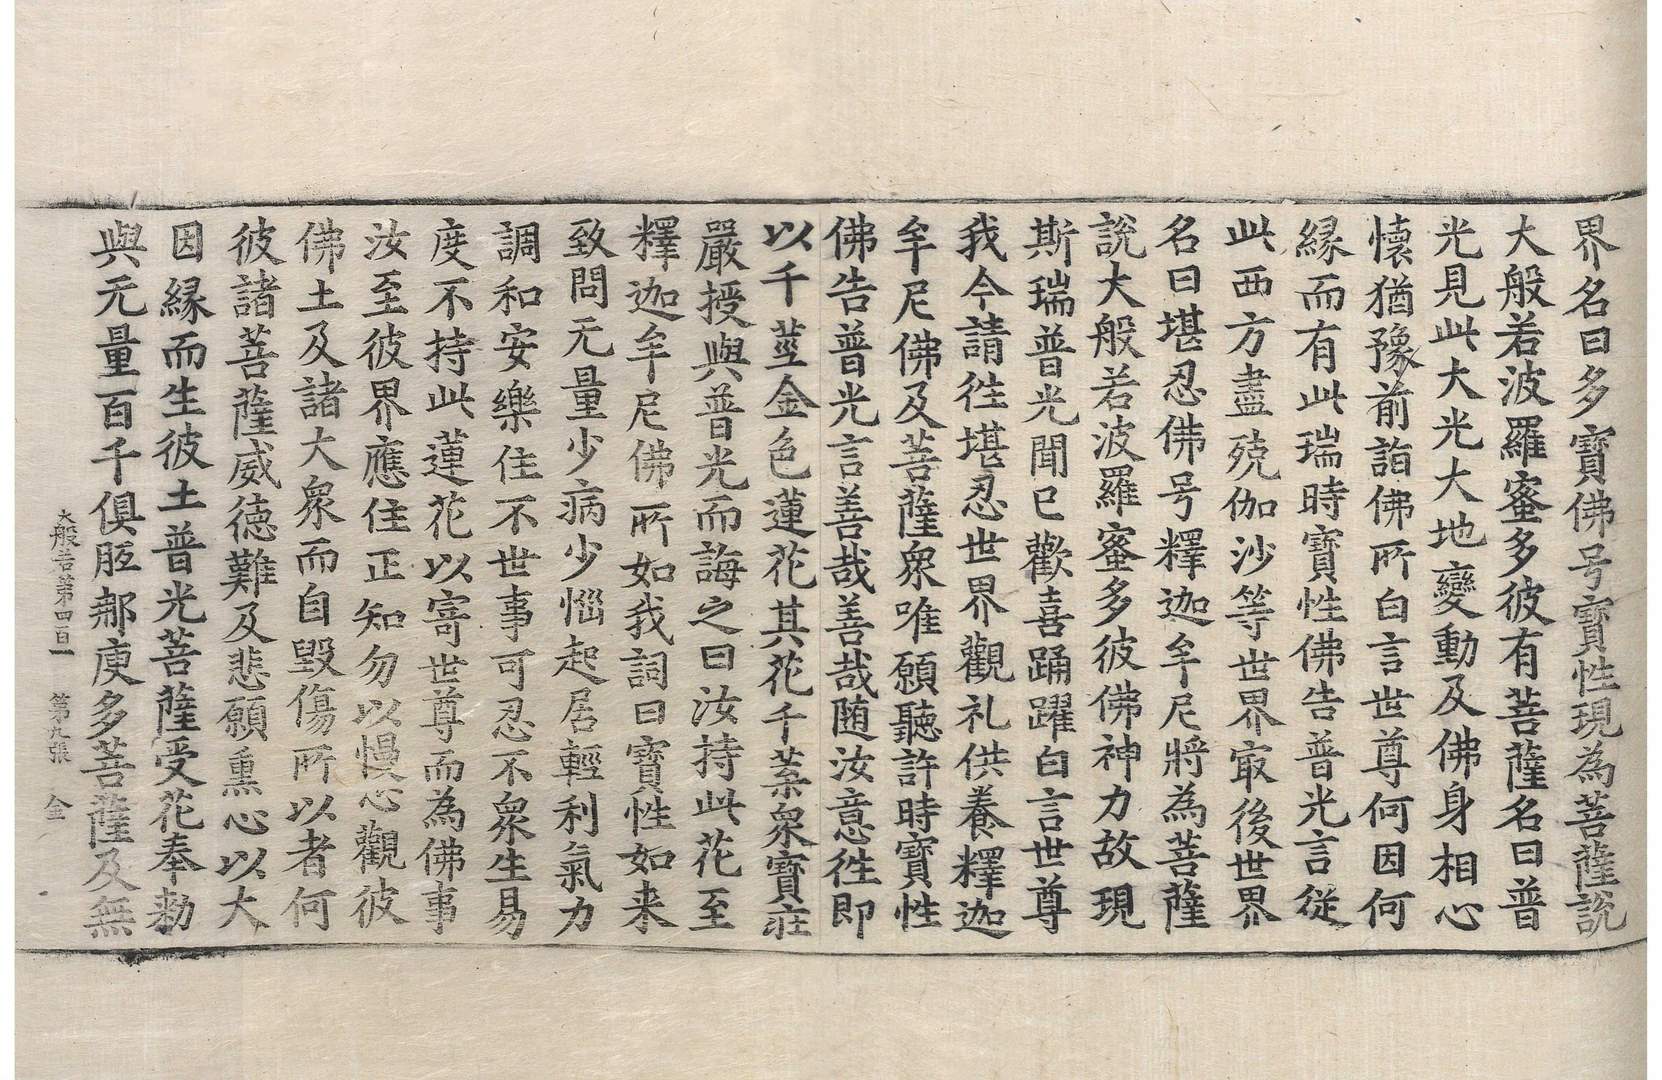 界名曰多寶佛号寶性現為菩薩說
大般若波羅蜜多彼有菩薩名曰普
光見此大光大地變動及佛身相心
懷猶豫前詣佛所白言世尊何因何
緣而有此瑞時寶性佛告普光言從
此西方盡殑伽沙等世界㝡後世界
名曰堪忍佛号釋迦牟尼將為菩薩
說大般若波羅蜜多彼佛神力故現
斯瑞普光聞已歡喜踊躍白言世尊
我今請往堪忍世界觀礼供養釋迦
牟尼佛及菩薩衆唯願聽許時寶性
佛告普光言善哉善哉随汝意徃即
以千莖金色蓮花其花千葉衆寶莊
嚴授與普光而誨之曰汝持此花至
釋迦牟尼佛所如我詞曰寶性如来
致問无量少病少惱起居輕利氣力
調和安樂住不世事可忍不衆生易
度不持此蓮花以寄世尊而為佛事
汝至彼界應住正知勿以慢心觀彼
佛土及諸大衆而自毀傷所以者何
彼諸菩薩威德難及悲願熏心以大
因緣而生彼土普光菩薩受花奉勑
與无量百千俱胝那庾多菩薩及無
大般若第四百一 第九張 金